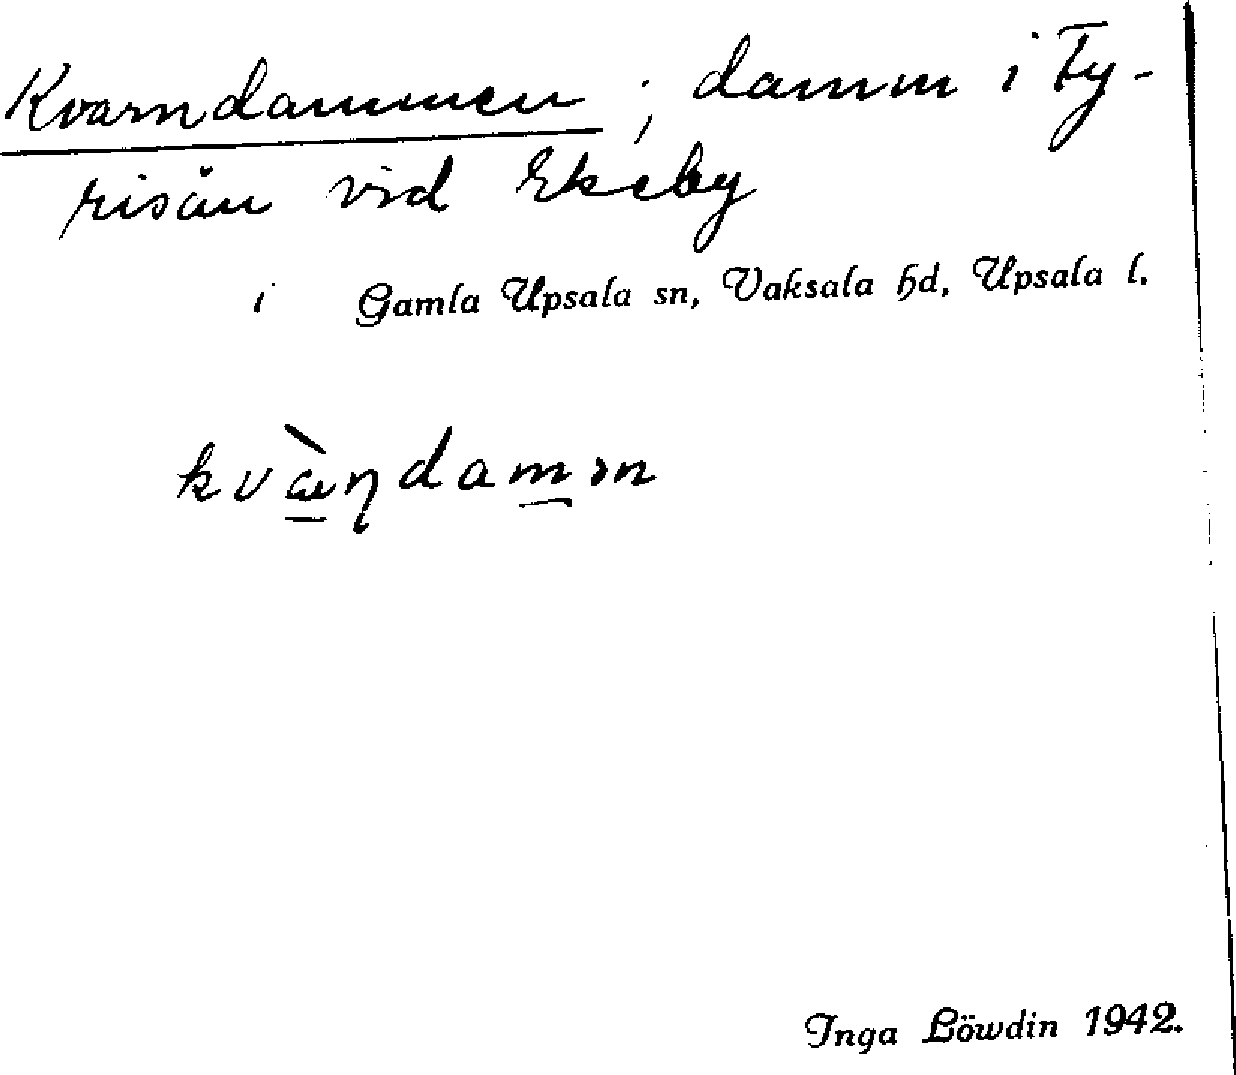 Kvarndammen; damm i Fy-
risån vid Ekeby
i Gamla Upsala sn, Vaksala hd, Upsala l.
kvæ̀ṇdamən
Inga Löwdin 1942.